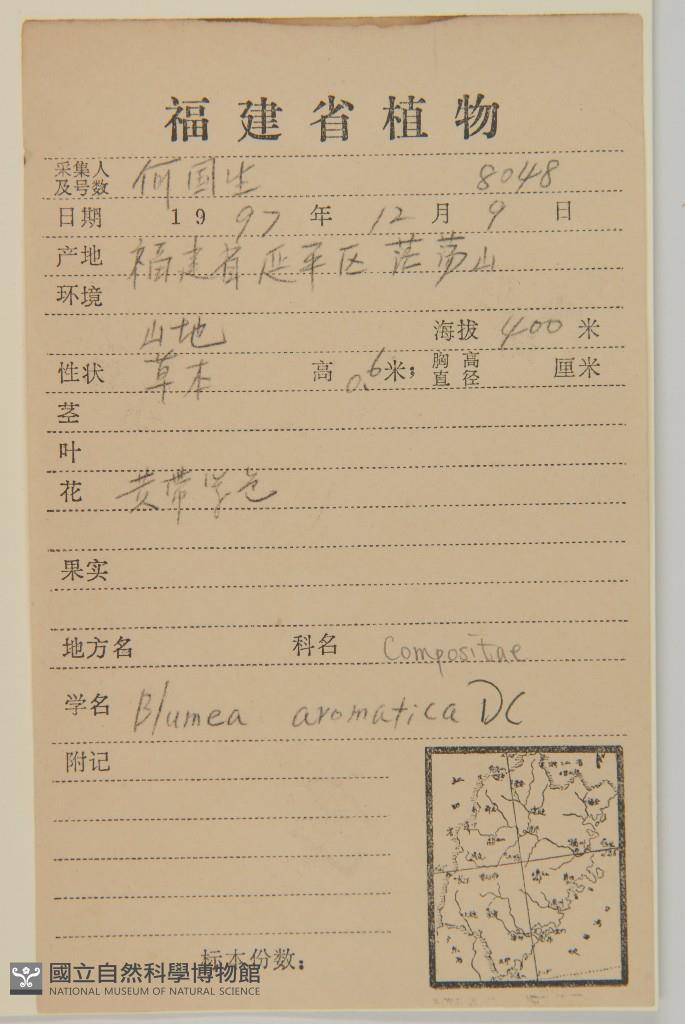 福建省植物
采集人及号数 何国生 8048
日期 1997年12月9日
产地 福建省延平区茫荡山
环境
山地 海拔 400 米
性状 草本 高 0.6米; 胸高直径 厘米
茎
叶
花 黄带紫色
果实
地方名 科名 Compositae
学名 Blumea aromatica DC
附记
标本份数:
國立自然科學博物館
NATIONAL MUSEUM OF NATURAL SCIENCE